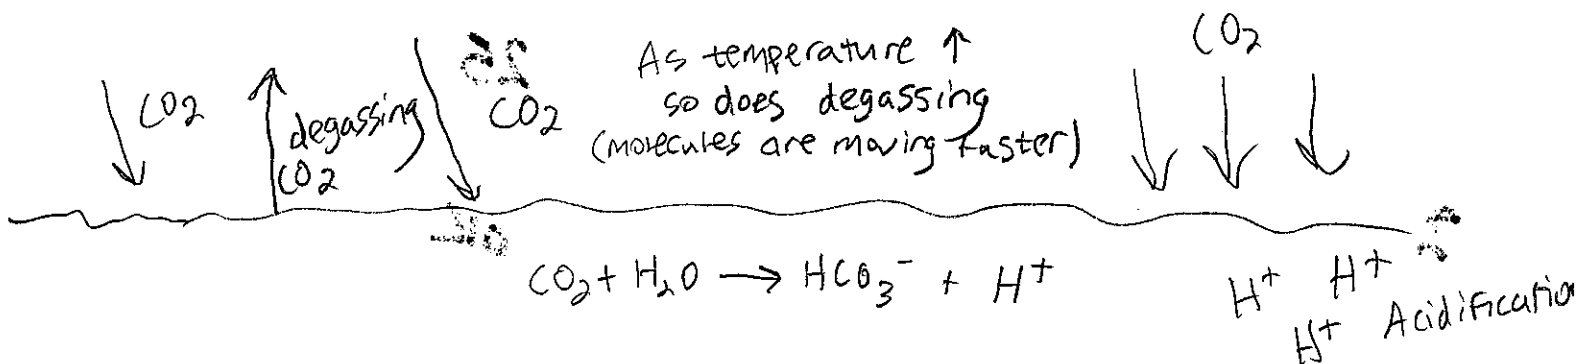 CO2
degassing
CO2
CO2
As temperature ↑
so does degassing
(molecules are moving faster)
CO2
CO2 + H2O → HCO3⁻ + H⁺
H⁺ H⁺
H⁺ Acidification